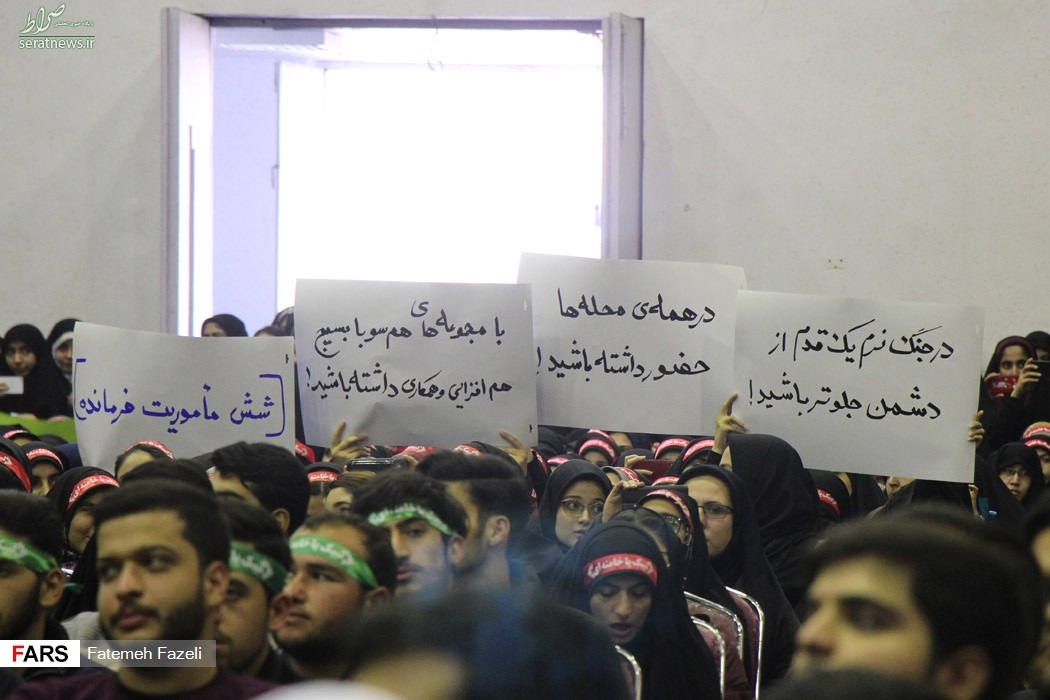 صراط
seratnews.ir
در جنگ نرم یک قدم از
دشمن جلوتر باشید!
در همه‌ی محله‌ها
حضور داشته باشید!
با مجموعه‌های هم‌سو با بسیج
هم افزایی و همکاری داشته باشید!
[شش مأموریت فرمانده]
لبیک یا خامنه‌ای
لبیک یا خامنه‌ای
FARS Fatemeh Fazeli